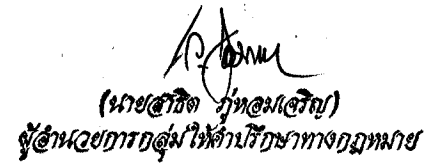 (นายสาธิต ภู่หอมเจริญ)
ผู้อำนวยการกลุ่มให้คำปรึกษาทางกฎหมาย